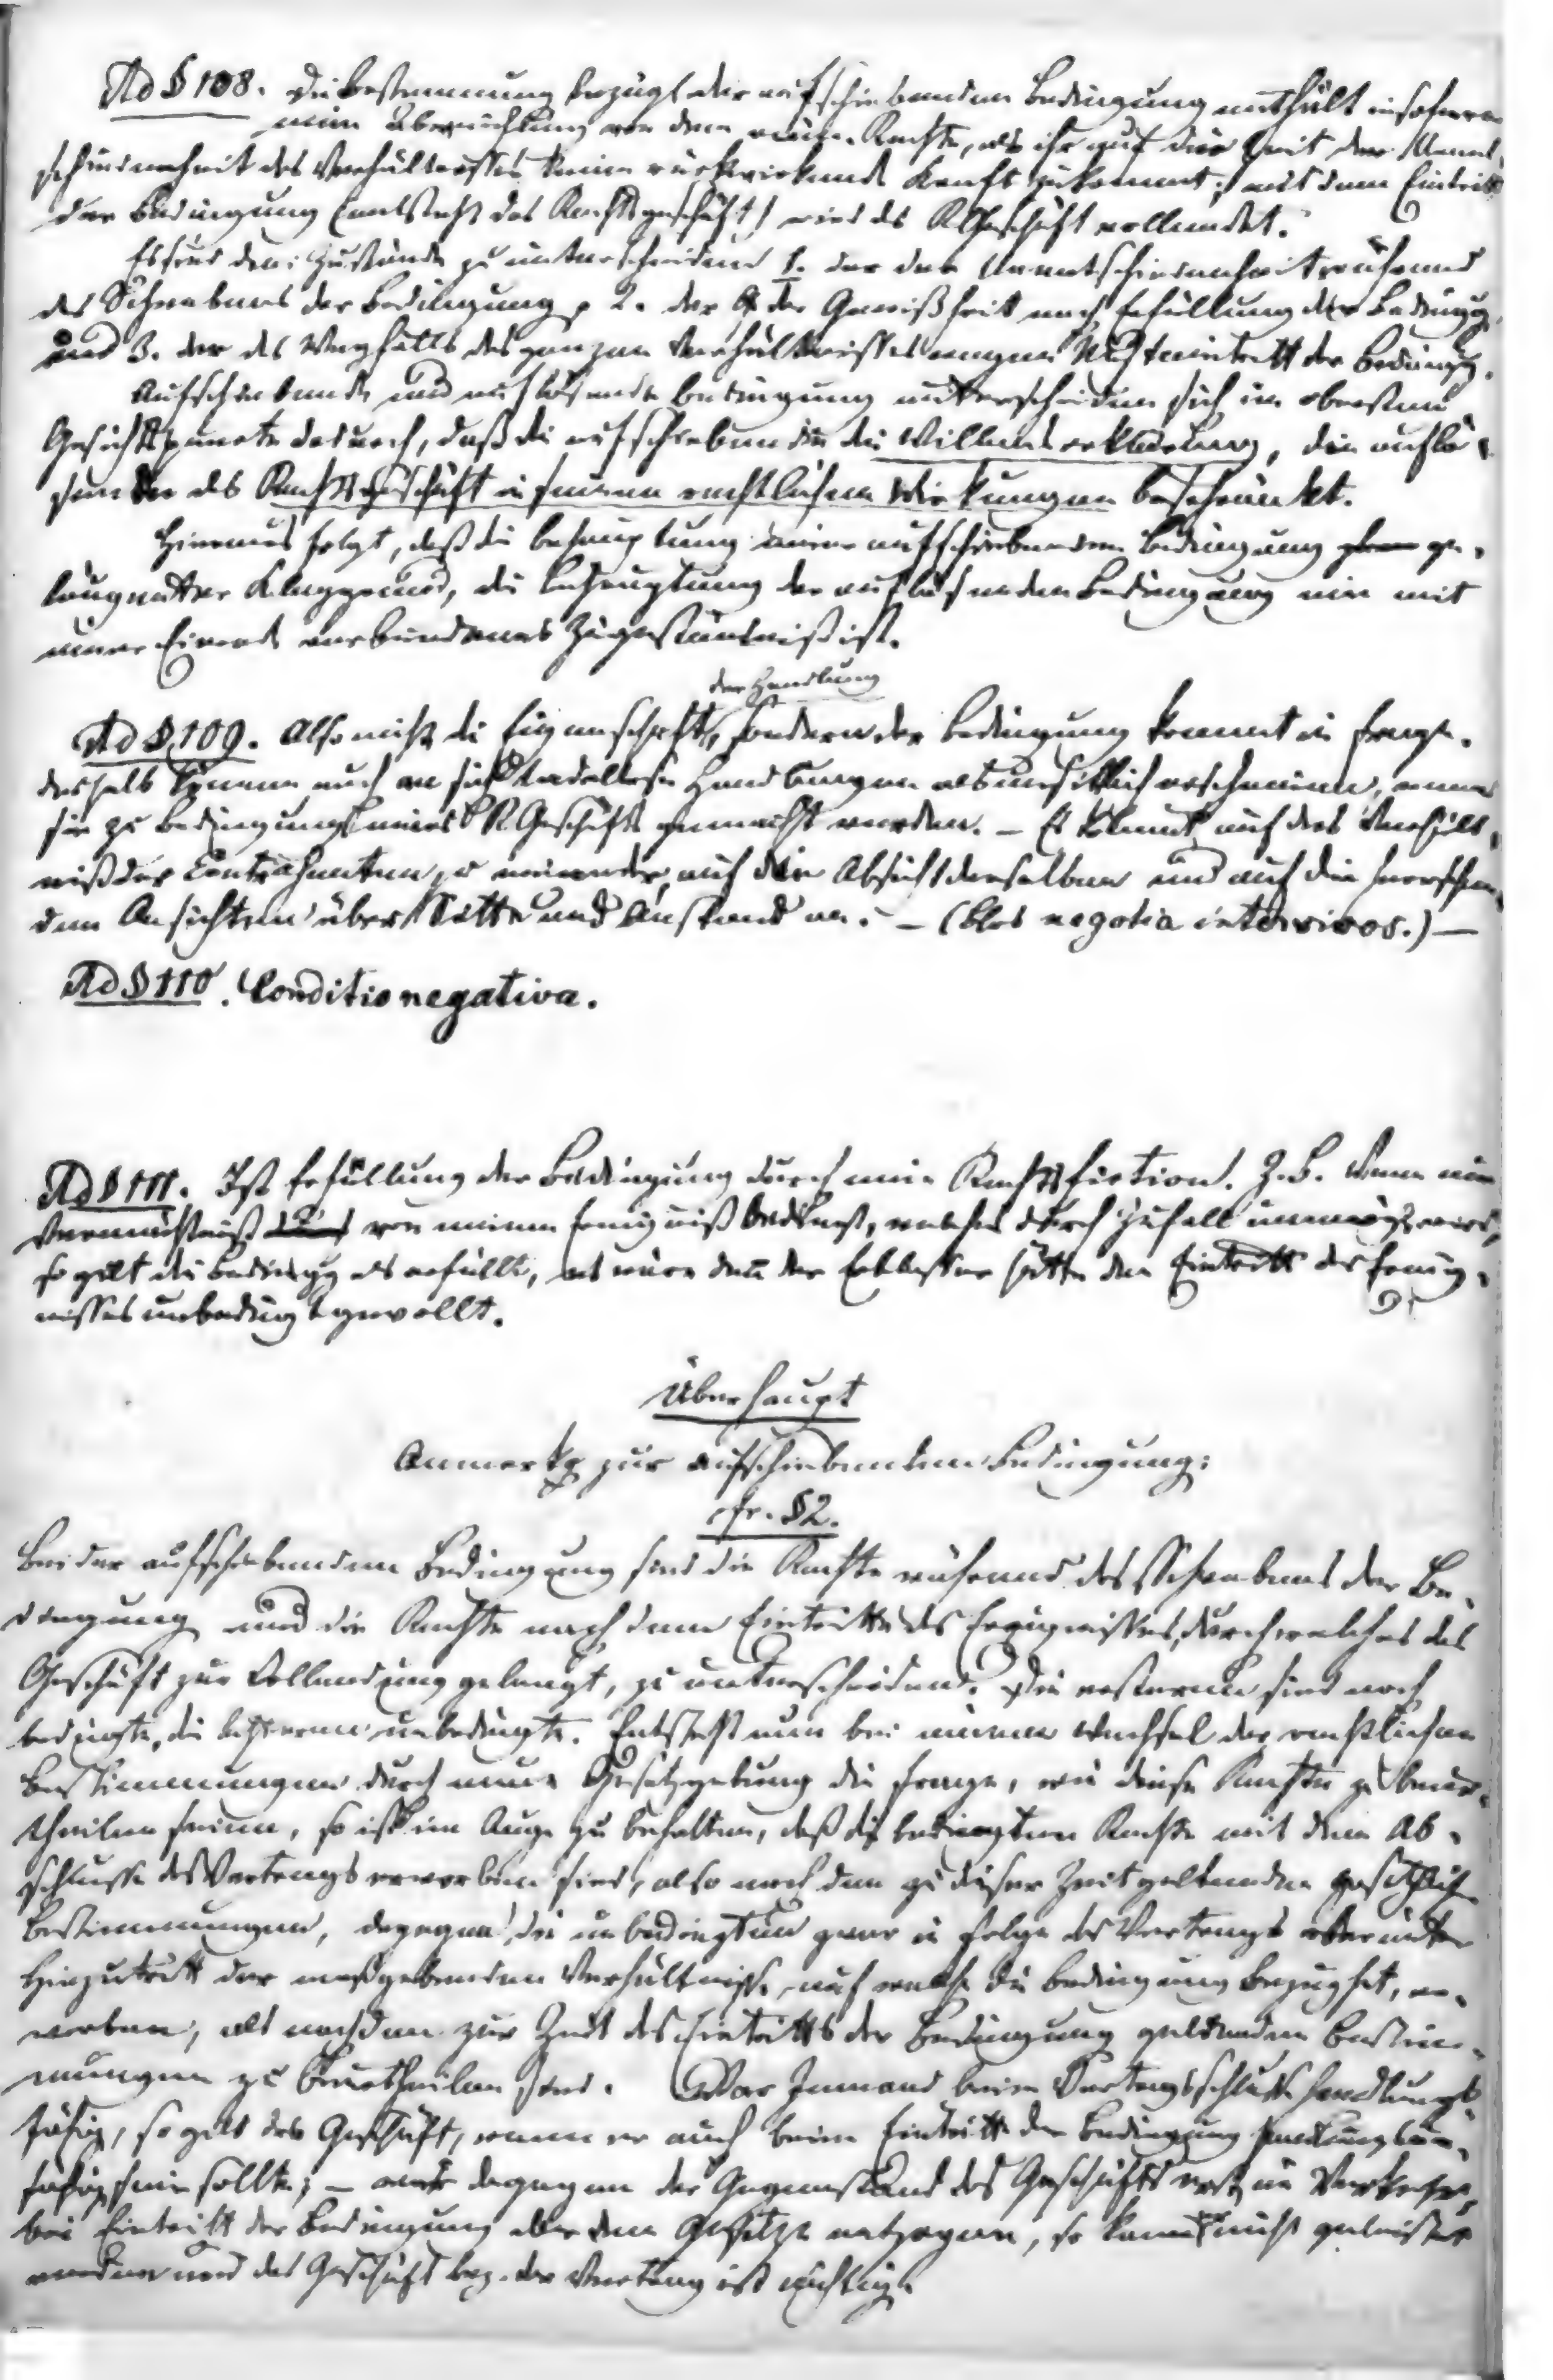 Ad § 108. Die Bestimmung bezügl. der aufschiebenden Bedingung enthält insofern
eine Abweichung von dem röm. Rechte, als ihr auf die Zeit der Unent-
schiedenheit des Verhältnisses keine rückwirkende Kraft zukommt; mit dem Eintritt
der Bedingung (entsteht das Rechtsgeschäft) wird das RGeschäft vollendet.
Es sind drei Zustände zu unterscheiden 1. der der Unentschiedenheit während
des Schwebens der Bedingung, 2. der der Gewißheit nach Erfüllung der Bedingg.
und 3. der des Wegfalls des ganzen Verhältnisses wegen Nichteintritt der Bedingg.
Aufschiebende und auflösende Bedingung unterscheiden sich im obersten
Gesichtspuncte dadurch, daß die aufschiebende die Willenserklärung, die auflö-
sende das Rechtsgeschäft in seinen rechtlichen Wirkungen beschränkt.
Hieraus folgt, daß die Behauptung einer aufschiebenden Bedingung ge-
läugneter Klaggrund, die Behauptung der auflösenden Bedingung ein mit
einer Einrede verbundenes Zugeständniß ist.
der Handlung
Ad § 109. Also nicht die Eigenschaft, sondern der Bedingung kommt in Frage.
Deshalb können auch an sich tadellose Handlungen als unsittlich erscheinen, wenn
sie zu Bedingungen eines RGeschäfts gemacht werden. – Es kommt auf das Verhält-
niß der Contrahenten zu einander, auf die Absicht derselben und auf die herrschen-
den Ansichten über Sitte und Anstand an. – (blos negotia inter vivos.) –
Ad § 110. Conditio negativa.
Ad § 111. Ist Erfüllung der Bedingung durch eine Rechtsfiction. Z.B. Wenn ein
Vermächtniß von einem Ereigniß bedingt, welches durch Zufall unmögl. wird,
so gilt die Bedingg als erfüllt, es wäre denn der Erblasser hätte den Eintritt des Ereig-
nisses unbedingt gewollt.
Überhaupt
Anmerkg zur aufschiebenden Bedingung:
cfr. § 2.
Bei der aufschiebenden Bedingung sind die Rechte während des Schwebens der Be-
dingung und die Rechte nach dem Eintritte des Ereignisses, durch welches das
Geschäft zur Vollendung gelangt, zu unterscheiden. Die ersteren sind noch
bedingte, die letzteren unbedingte. Entsteht nun bei einem Wechsel der rechtlichen
Bestimmungen durch neue Gesetzgebung die Frage, wie diese Rechte zu beur-
theilen seien, so ist im Auge zu behalten, daß die bedingten Rechte mit dem Ab-
schlusse des Vertrags erworben sind, also nach den zu dieser Zeit geltenden gesetzlich.
Bestimmungen, dagegen die unbedingten zwar in Folge des Vertrags aber unter
Hinzutritt der maßgebenden Verhältnisse, auf welche die Bedingung Bezug hat, er-
worben, als nach den zur Zeit des Eintritts der Bedingung geltenden Bestim-
mungen zu beurtheilen sind. War Jemand beim Vertragsschluß handlungs-
fähig, so gilt das Geschäft, wenn er auch beim Eintritt der Bedingung handlungsun-
fähig sein sollte; – dagegen der Gegenstand des Geschäfts
bei Eintritt der Bedingung aber dem Gesetze entgegen, so kann nicht geleistet
werden und das Geschäft bez. der Vertrag ist nichtig.